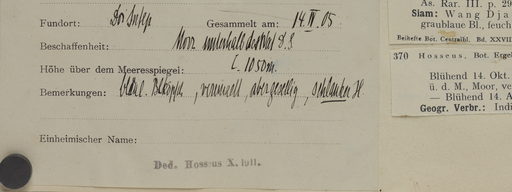 Fundort: Doi Sutep Gesammelt am: 14. II. 05.
Beschaffenheit: Moor unterhalb
Höhe über dem Meeresspiegel: C. 1050 m.
Bemerkungen: , vereinzelt, aber gesellig, schlanker
Einheimischer Name:
Ded. Hosseus X. 1911.
As. Rar. III. p. 29
Siam: Wang Dja
graublaue Bl., feuch
Beihefte Bot. Centralbl. Bd. XXVII
370 Hosseus, Bot. Ergeb
Blühend 14. Okt.
ü. d. M., Moor, ve
— Blühend 14. A
Geogr. Verbr.: Indi